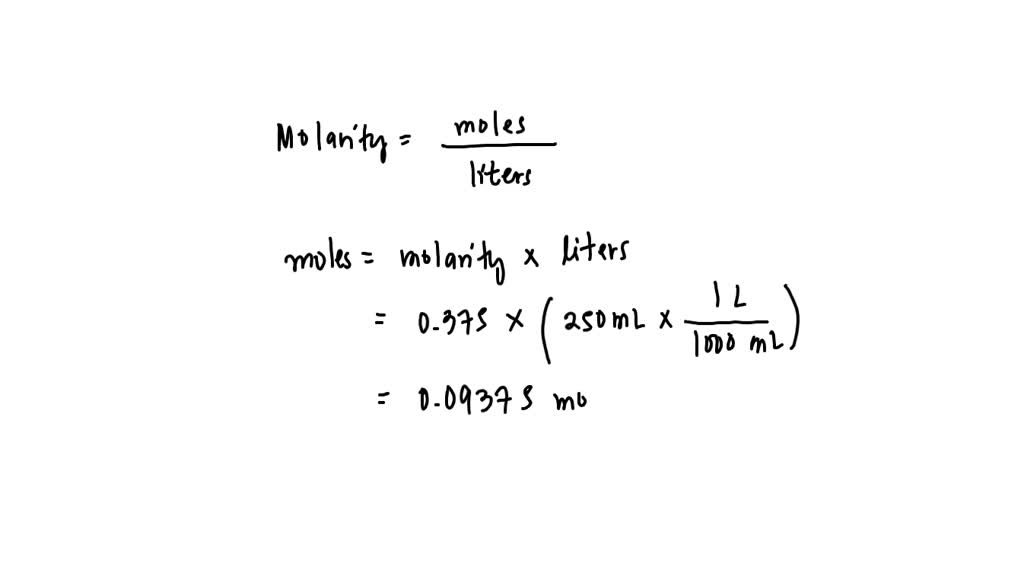 Molarity = moles / liters
moles = molarity × liters
= 0.375 × (250 mL × 1 L / 1000 mL)
= 0.09375 mo